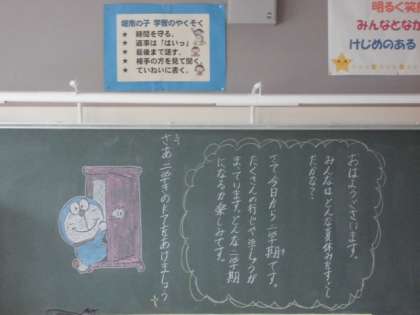 堀南の子 学習のやくそく
★ 時間を守る。
★ 返事は「はいっ」
★ 最後まで話す。
★ 相手の方を見て聞く。
★ ていねいに書く。
明るく笑
みんなとなか
けじめのある
おはようございます。
みんなはどんな夏休みをすごし
たかな?
さて、今日から二学期です。
たくさんの行じや学しゅうが
まっています。どんな二学期
になるか楽しみです。
さあ二学きのドアをあけましょう